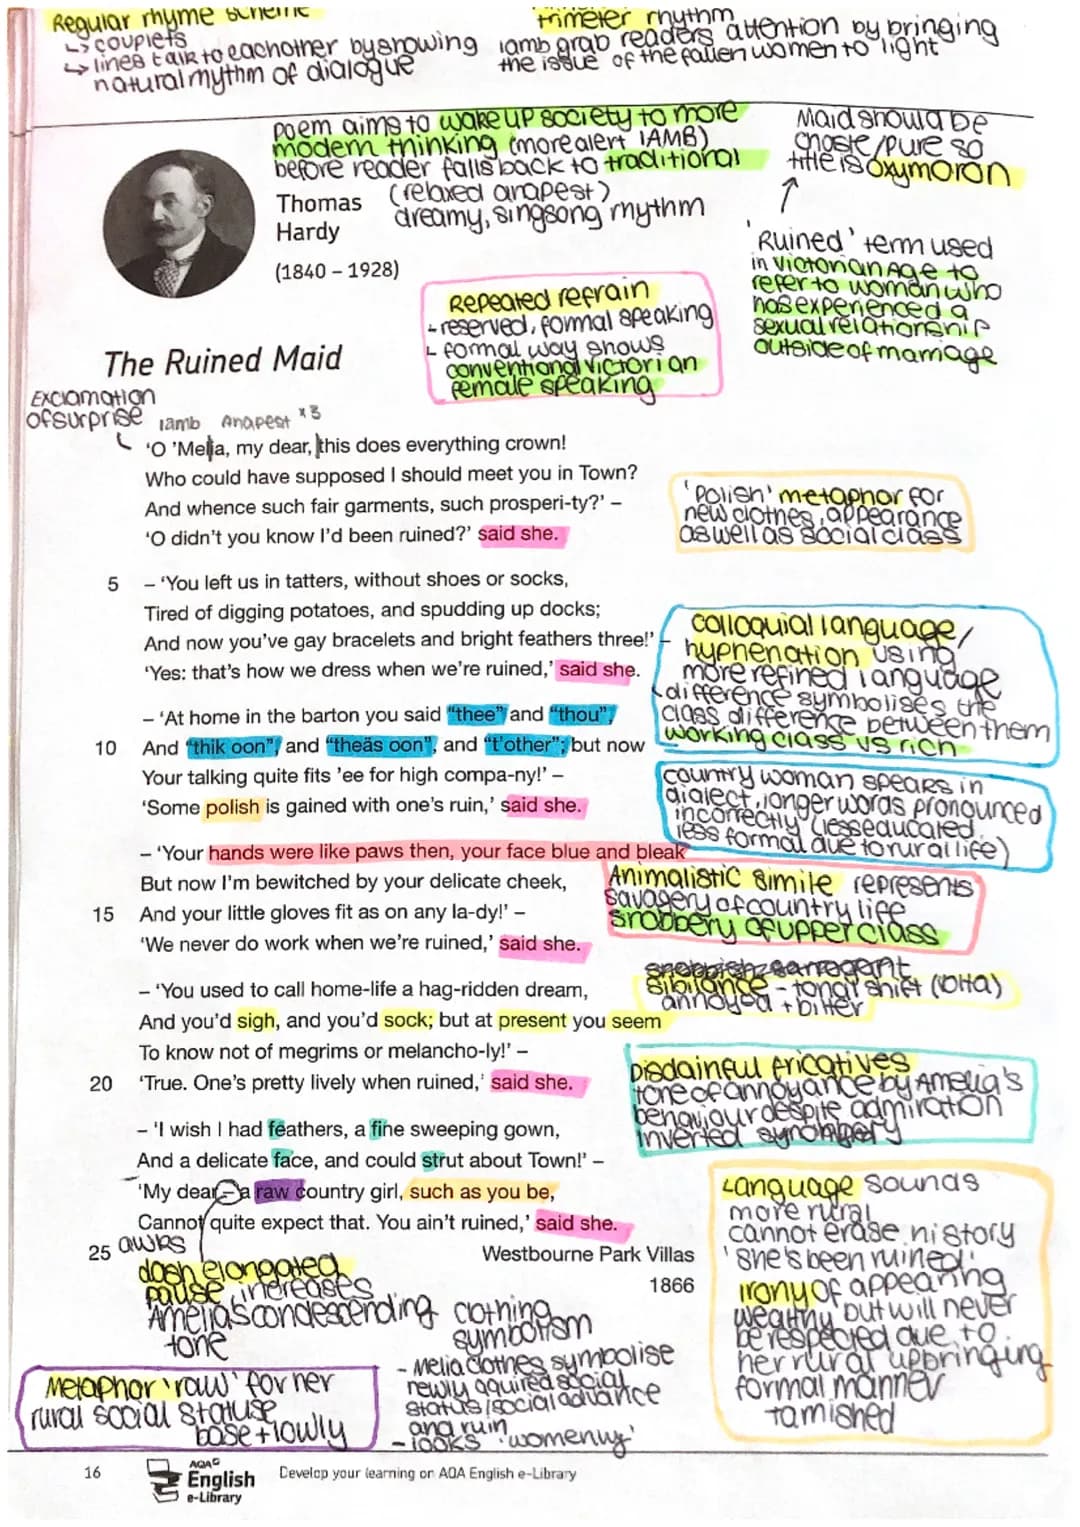 Regular rhyme scheme
↳ couplets
↳ lines talk to eachother by showing
natural rhythm of dialogue
trimeter rhythm
iamb grab readers attention by bringing
the issue of the fallen women to light
poem aims to wake up society to more
modern thinking (more alert IAMB)
before reader falls back to traditional
(relaxed anapest)
dreamy, singsong rhythm
Maid should be
chaste/pure so
title is oxymoron
'Ruined' term used
in Victorian Age to
refer to woman who
has experienced a
sexual relationship
outside of marriage
Thomas
Hardy
(1840 – 1928)
Repeated refrain
- reserved, formal speaking
- formal way shows
conventional victorian
female speaking
The Ruined Maid
Exclamation
of surprise
iamb Anapest x3
'O 'Melia, my dear, this does everything crown!
Who could have supposed I should meet you in Town?
And whence such fair garments, such prosperi-ty?' –
'O didn't you know I'd been ruined?' said she.
'Polish' metaphor for
new clothes, appearance
as well as social class
5 – 'You left us in tatters, without shoes or socks,
Tired of digging potatoes, and spudding up docks;
And now you've gay bracelets and bright feathers three!' –
'Yes: that's how we dress when we're ruined,' said she.
colloquial language/
hyphenation using
more refined language
difference symbolises the
class difference between them
working class vs rich
– 'At home in the barton you said "thee" and "thou",
10 And "thik oon", and "theäs oon", and "t'other"; but now
Your talking quite fits 'ee for high compa-ny!' –
'Some polish is gained with one's ruin,' said she.
country woman spears in
dialect, longer words pronounced
incorrectly (lesseducated,
less formal due to rural life)
– 'Your hands were like paws then, your face blue and bleak
But now I'm bewitched by your delicate cheek,
15 And your little gloves fit as on any la-dy!' –
'We never do work when we're ruined,' said she.
Animalistic simile represents
savagery of country life
snobbery of upper class
sibilance - tonal shift (volta)
annoyed + bitter
– 'You used to call home-life a hag-ridden dream,
And you'd sigh, and you'd sock; but at present you seem
To know not of megrims or melancho-ly!' –
20 'True. One's pretty lively when ruined,' said she.
Disdainful fricatives
tone of annoyance by Amelia's
behaviour despite admiration
inverted snobbery
– 'I wish I had feathers, a fine sweeping gown,
And a delicate face, and could strut about Town!' –
'My dear – a raw country girl, such as you be,
Cannot quite expect that. You ain't ruined,' said she.
25
Westbourne Park Villas
1866
awks
dash elongated
pause, increases
Amelia's condescending
tone
clothing
symbolism
- Melia clothes symbolise
newly aquired social
status/social advance
and ruin
- looks 'womenly'
Language sounds
more rural
cannot erase history
'she's been ruined'
irony of appearing
wealthy but will never
be respected due to
her rural upbringing
formal manner
tarnished
Metaphor 'raw' for her
rural social statuse
base + lowly
16
AQA
English
e-Library
Develop your learning on AQA English e-Library